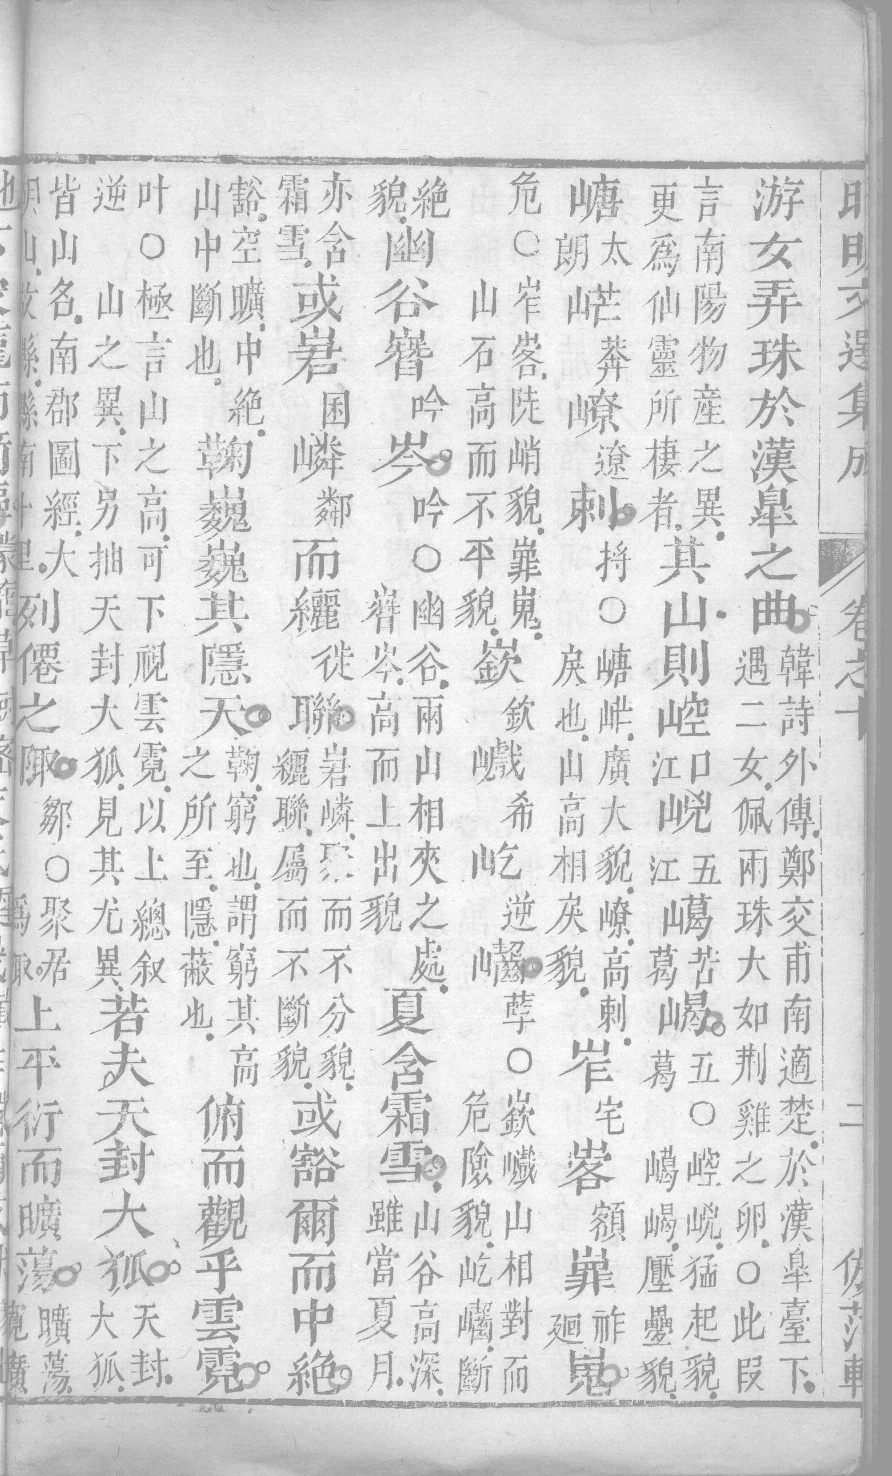 昭明文選集成 卷之十 二 倣范軒
游女弄珠於漢皐之曲韓詩外傳鄭交甫南適楚於漢皐臺下遇二女佩兩珠大如荆雞之卵○此段
言南陽物產之異更爲仙靈所棲者其山則崆口江㟅五江嶱苦葛嵑五葛○崆㟅猛起貌嶱嵑壓疊貌
嵣太朗𡶶芒莽嶚遼剌捋○嵣𡶶廣大貌嶚高剌戾也山高相戾貌岝宅㟧額嶵祚廻嵬
危○岝㟧陡峭貌嶵嵬山石高而不平貌嶔欽巇希屹逆𡾲孽○嶔巇山相對而危險貌屹𡾲斷
絕貌幽谷嶜吟岑吟○幽谷兩山相夾之處嶜岑高而上出貌夏含霜雪山谷高深雖當夏月
亦含霜雪或㟒囷嶙鄰而纚徙聯㟒嶙聚而不分貌纚聯屬而不斷貌或豁爾而中絕
豁空曠中絕山中斷也鞠巍巍其隱天鞠窮也謂窮其高之所至隱蔽也俯而觀乎雲霓
叶逆○極言山之高可下視雲霓以上總叙山之異下另抽天封大狐見其尤異若夫天封大狐天封大狐
皆山名南郡圖經大胡山故縣縣南十里列僊之陬鄒○聚居爲陬上平衍而曠蕩曠蕩寬廣